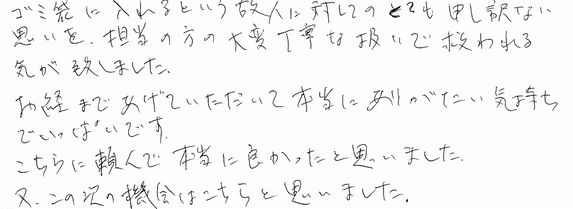 ゴミ袋に入れるという故人に対してのとても申し訳ない
思いを、担当の方の大変丁寧な扱いで救われる
気が致しました。
お経まであげていただいて本当にありがたい気持ち
でいっぱいです。
こちらに頼んで本当に良かったと思いました。
又、この次の機会はこちらと思いました。